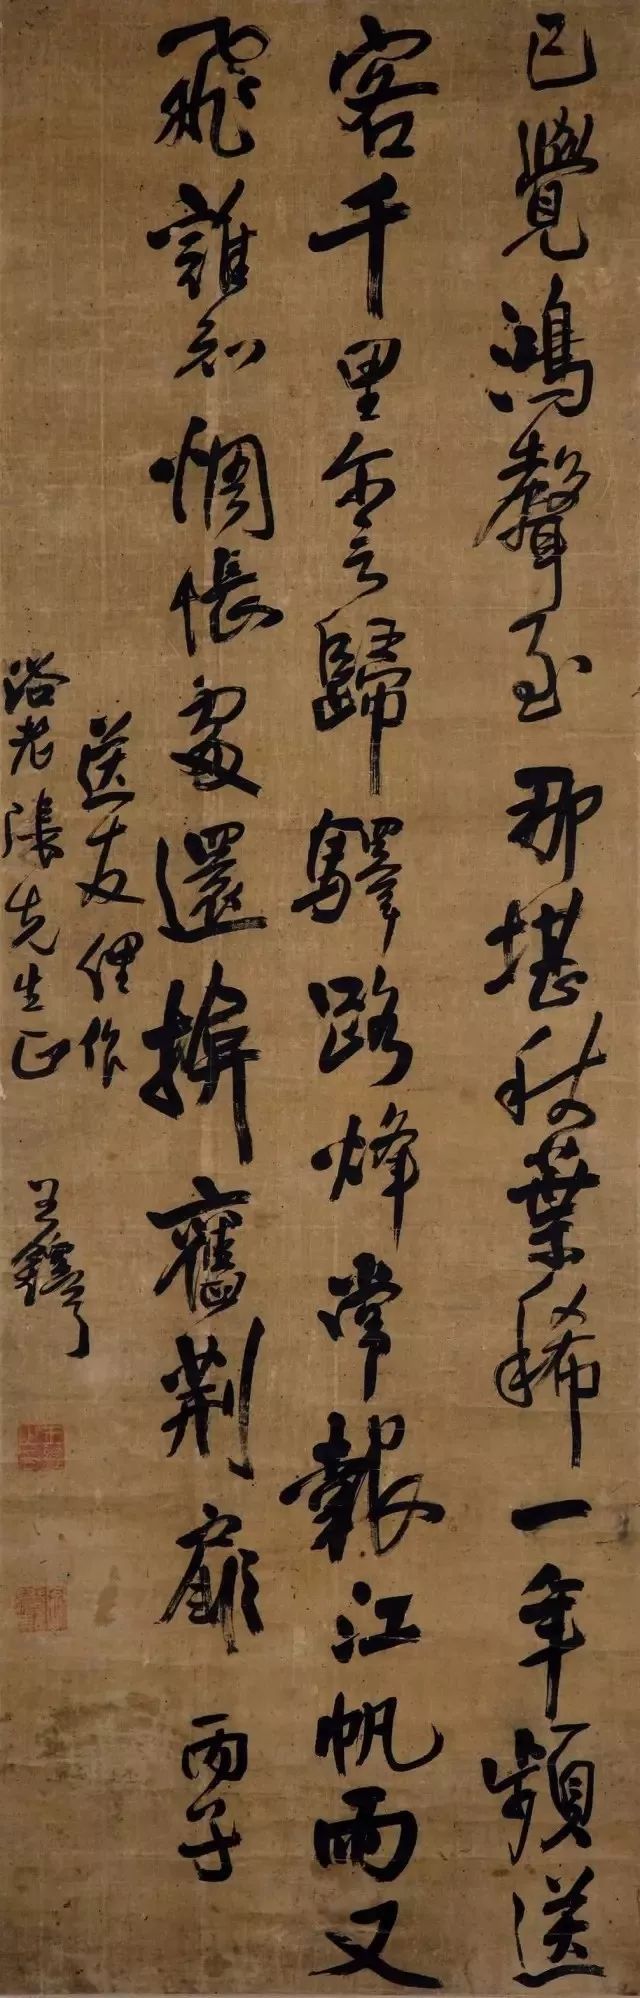 已覺鴻聲至那堪秋葉稀一年頻送
客千里尔言歸驛路烽常報江帆雨又
飛誰知惆悵處還揜舊荆扉 丙子
送友俚作
浴老張先生正 王鐸